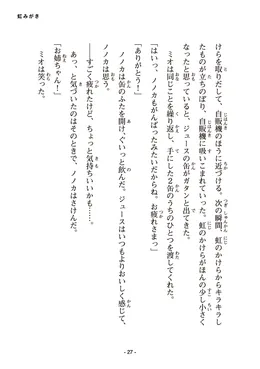 虹みがき
けらを取りだして、自販機のほうに近づける。次の瞬間、虹のかけらからキラキラし
たものが立ちのぼり、自販機に吸いこまれていった。虹のかけらがほんの少し小さく
なったと思っていると、ジュースの缶がガタンと出てきた。
ミオは同じことを繰り返し、手にした2缶のうちのひとつを渡してくれた。
「はいっ、ノノカもがんばったみたいだからね。お疲れさまっ」
「ありがとう！」
ノノカは缶のふたを開け、ぐいっと飲んだ。ジュースはいつもよりおいしく感じて、
――すごく疲れたけど、ちょっと気持ちいいかも……。
あっ、と気づいたのはそのときで、ノノカはさけんだ。
「お姉ちゃん！」
ミオは笑った。
- 27 -